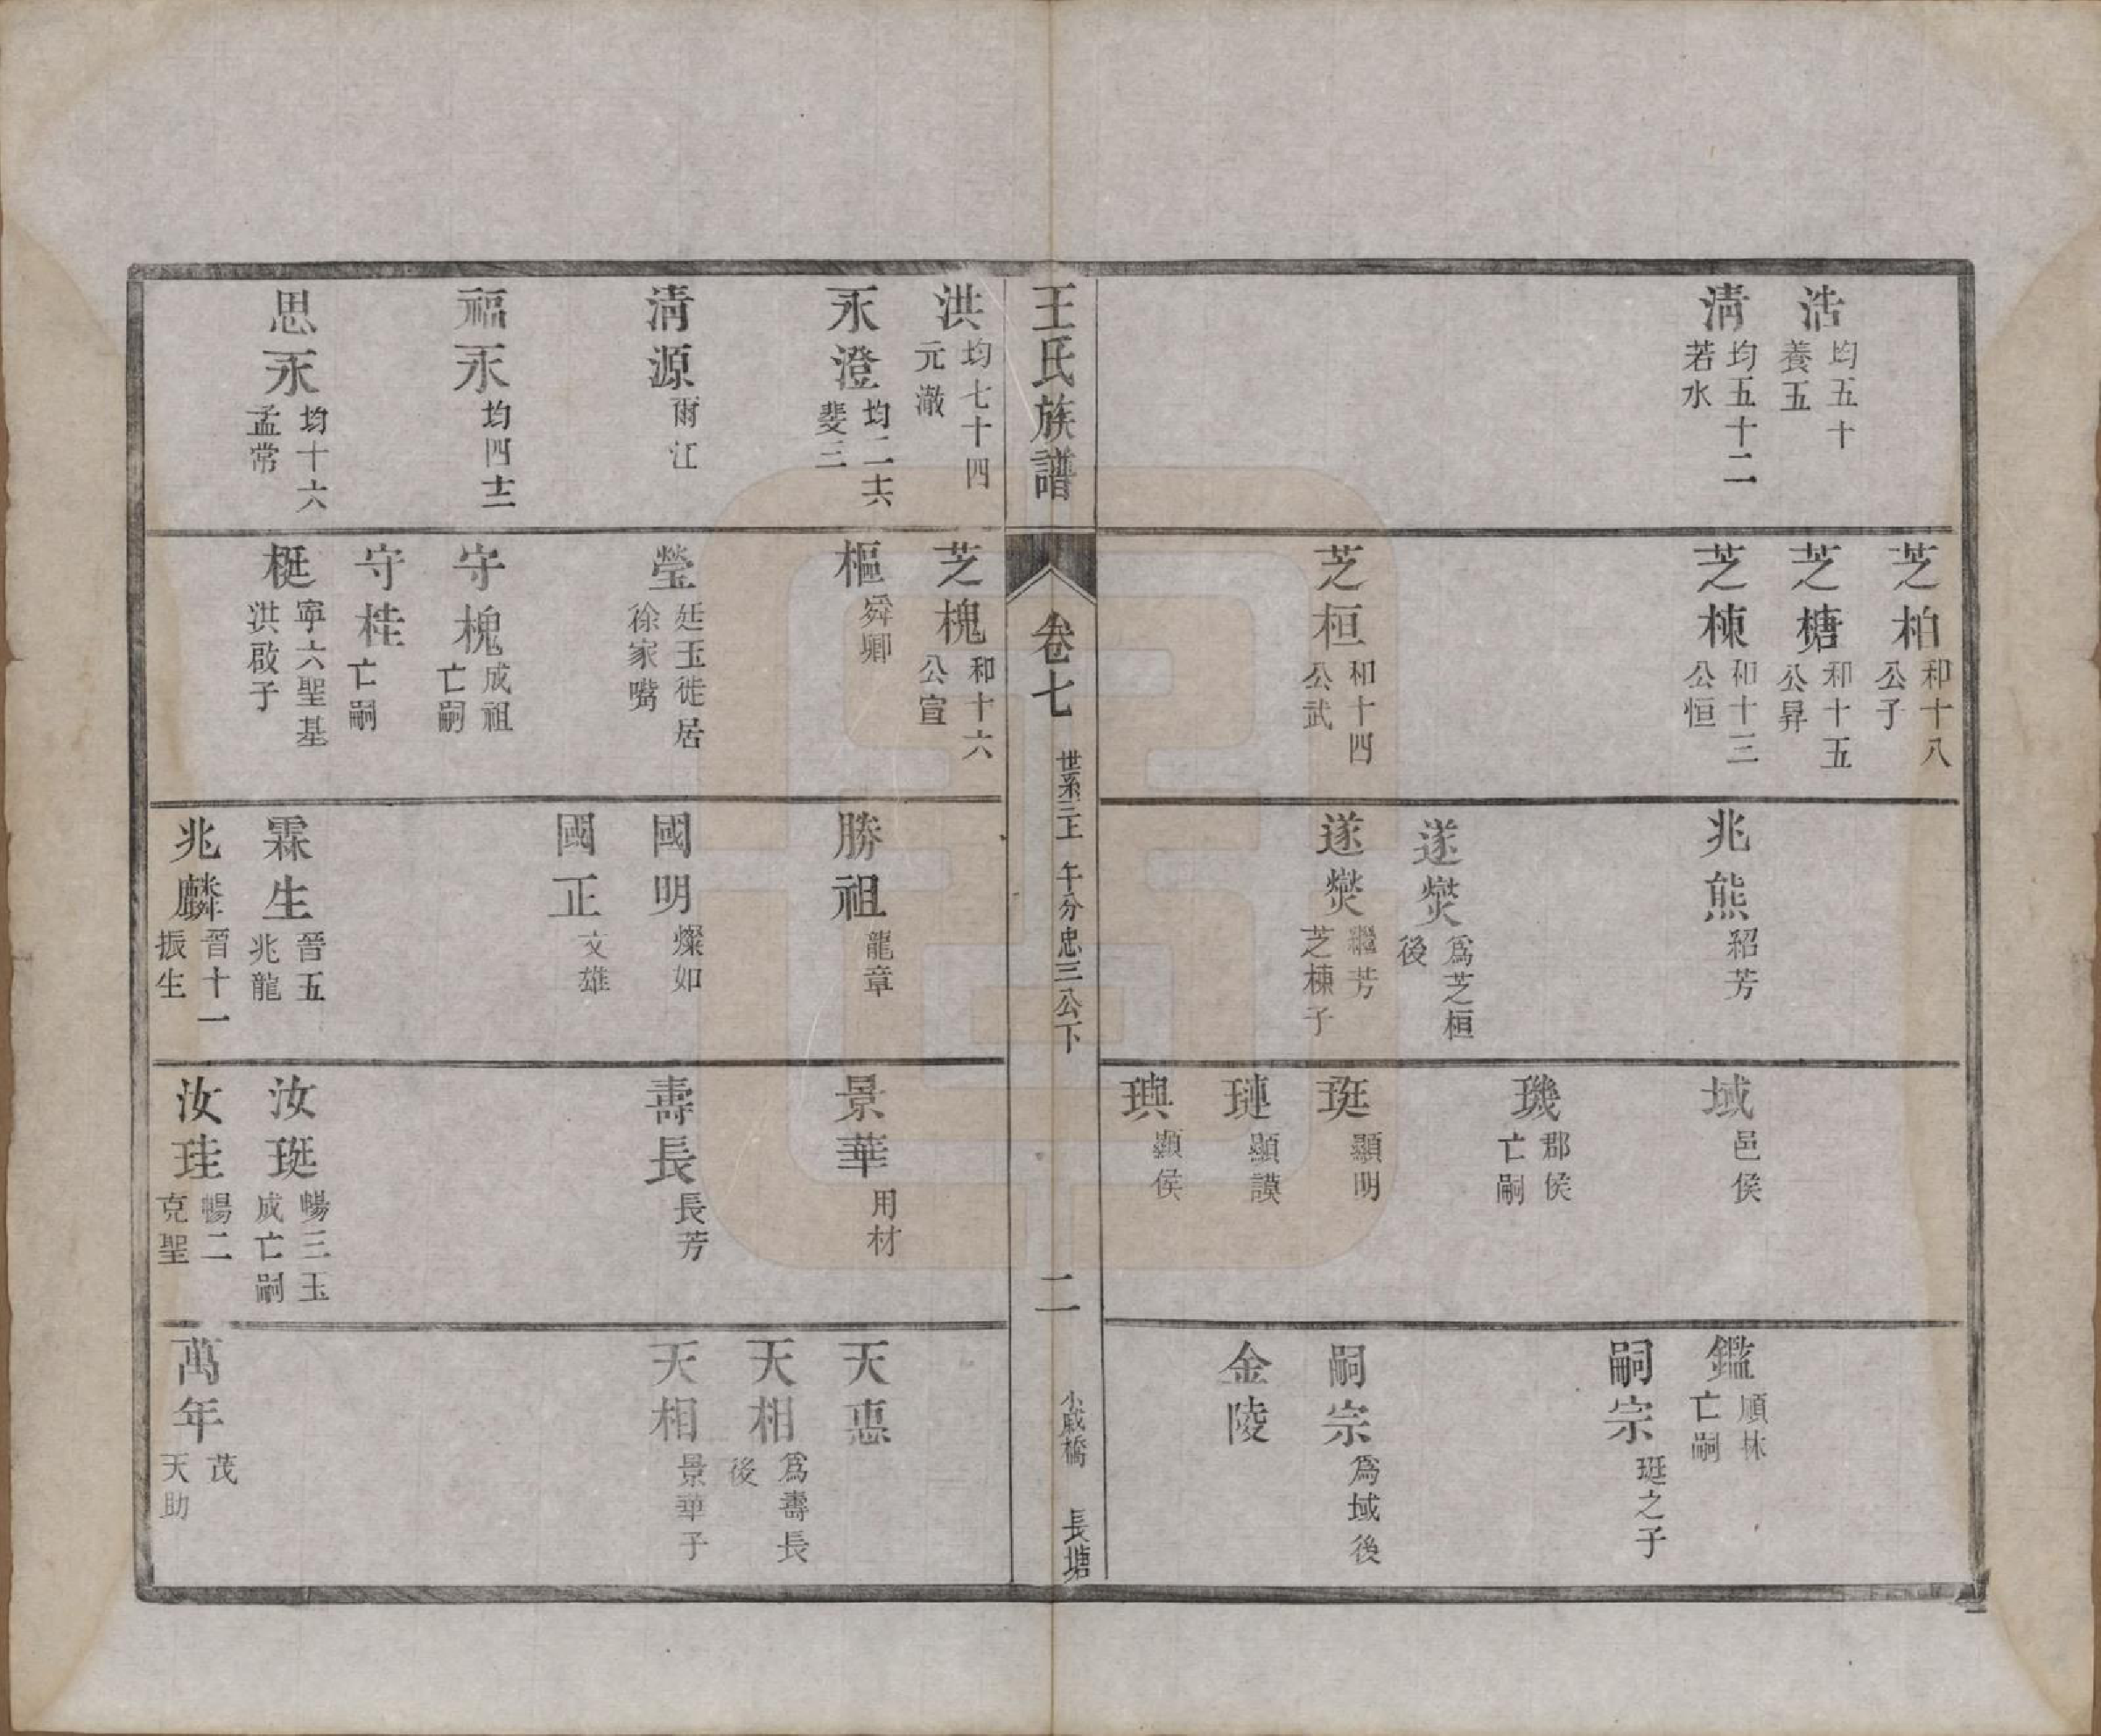 浩 均五十 養五
清 均五十二 若水
芝柏 和十八 公子
芝榶 和十五 公昇
芝棟 和十三 公恒
芝桓 和十四 公武
兆熊 紹芳
遂爕 爲芝桓後
遂爕 繼芳 芝棟子
域 邑侯
璣 郡侯 亡嗣
珽 顯明
璉 顯謨
璵 顯侯
鑑 順林 亡嗣
嗣宗 珽之子
嗣宗 爲域後
金陵
王氏族譜
卷七 世系三上 午分忠三公下
二
小戚橋 長塘
洪 均七十四 元澈
永澄 均二十六 斐三
清源 爾江
福永 均四十二
思永 均十六 孟常
芝槐 和十六 公宣
樞 舜卿
瑩 廷玉徙居 徐家嘴
守槐 成祖 亡嗣
守桂 亡嗣
梃 寧六聖基 洪啟子
勝祖 龍章
國明 燦如
國正 文雄
霖生 晉五 兆龍
兆麟 晉十一 振生
景華 用材
壽長 長芳
汝珽 暢三玉 成亡嗣
汝珪 暢二 克聖
天惠
天相 爲壽長後
天相 景華子
萬年 茂 天助